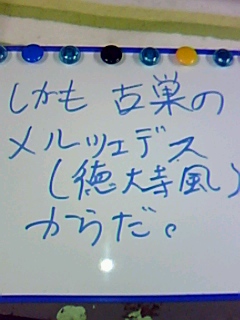 しかも 古巣の
メルツェデス
(徳大寺風)
からだ。